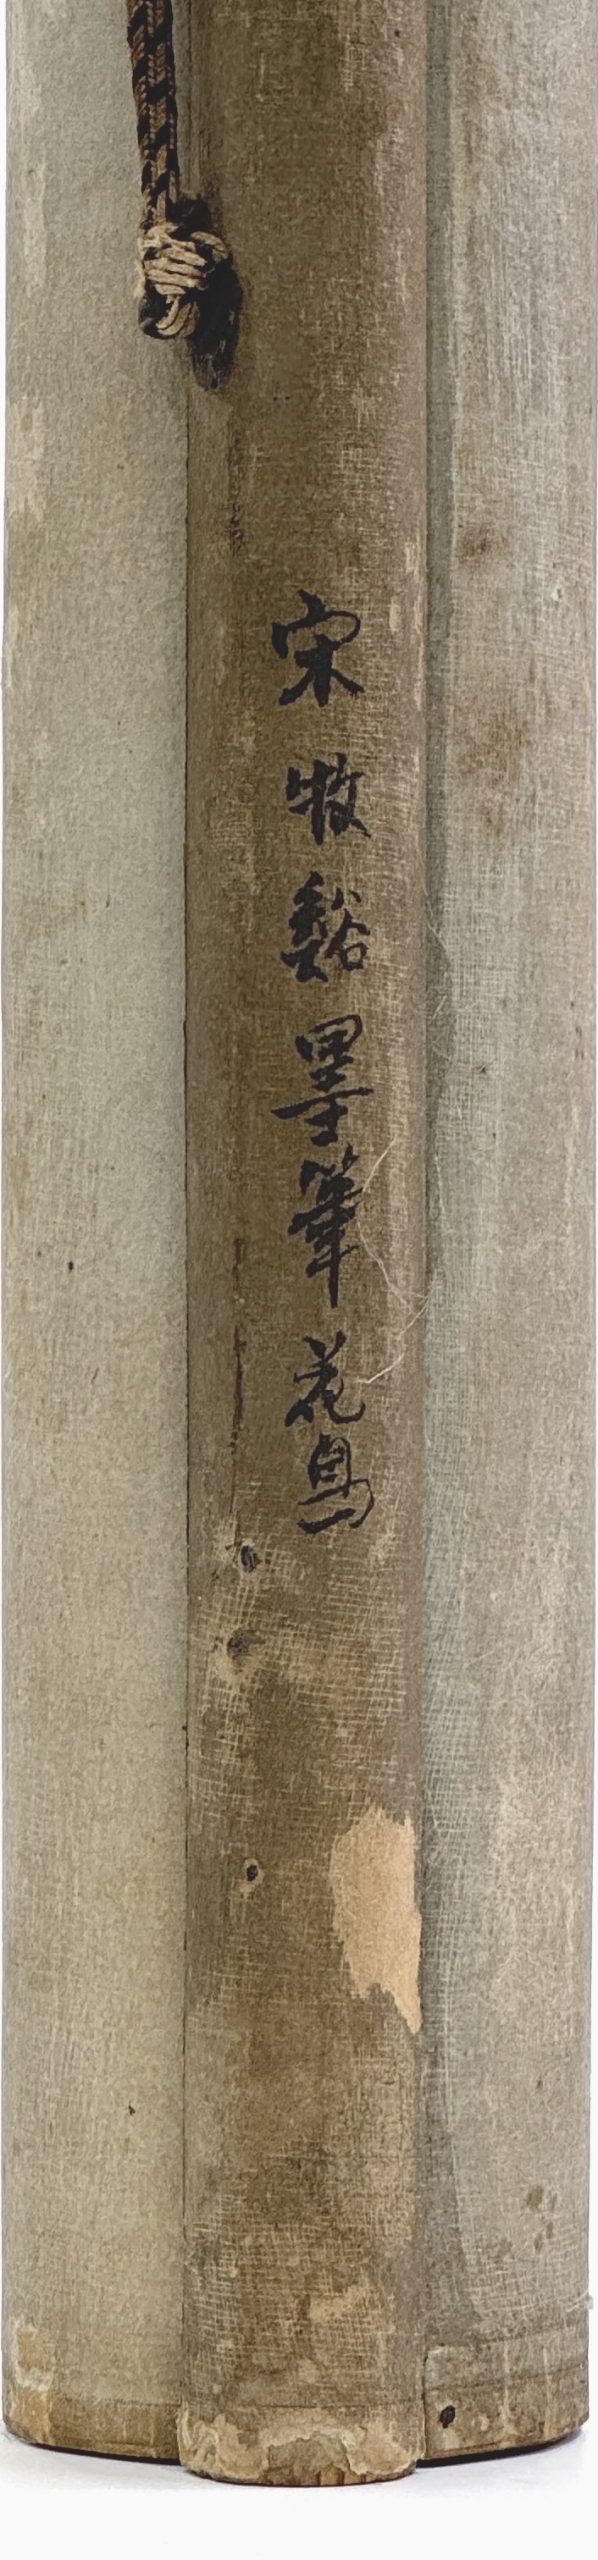 宋牧谿墨筆花鳥